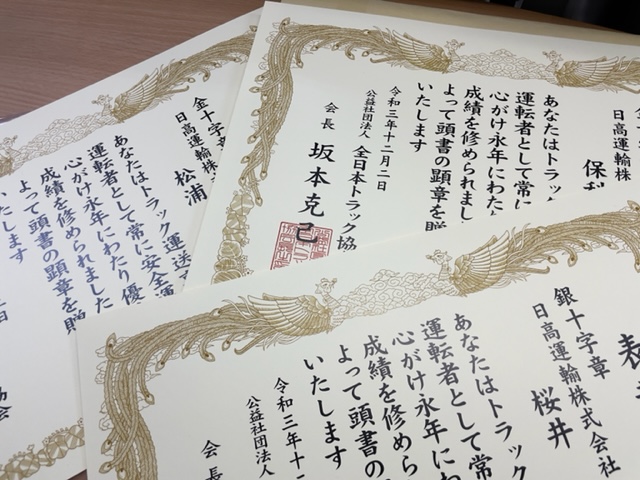 金十字章
日高運輸株
松浦
あなたはトラック運送
運転者として常に安全運
心がけ永年にわたり優
成績を修められました
よって頭書の顕章を贈
いたします
日高運輸株
保
あなたはトラック
運転者として常に
心がけ永年にわた
成績を修められまし
よって頭書の顕章を贈
いたします
令和三年十二月二日
公益社団法人 全日本トラック協
会長 坂本克己
表
銀十字章
日高運輸株式会社
桜井
あなたはトラック
運転者として常
心がけ永年にわ
成績を修めら
よって頭書の
いたします
令和三年十
公益社団法人
会長